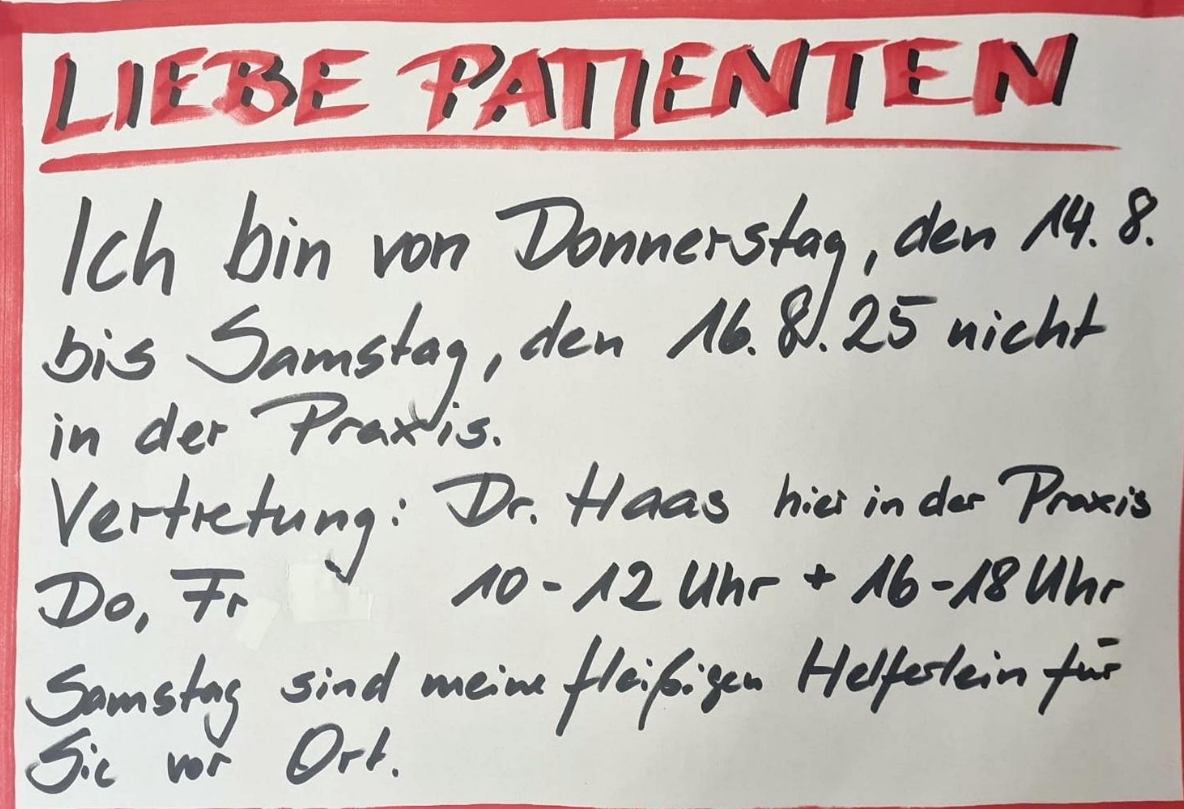 LIEBE PATIENTEN
Ich bin von Donnerstag, den 14. 8.
bis Samstag, den 16. 8. 25 nicht
in der Praxis.
Vertretung: Dr. Haas hier in der Praxis
Do, Fr 10 - 12 Uhr + 16 - 18 Uhr
Samstag sind meine fleißigen Helferlein für
Sie vor Ort.